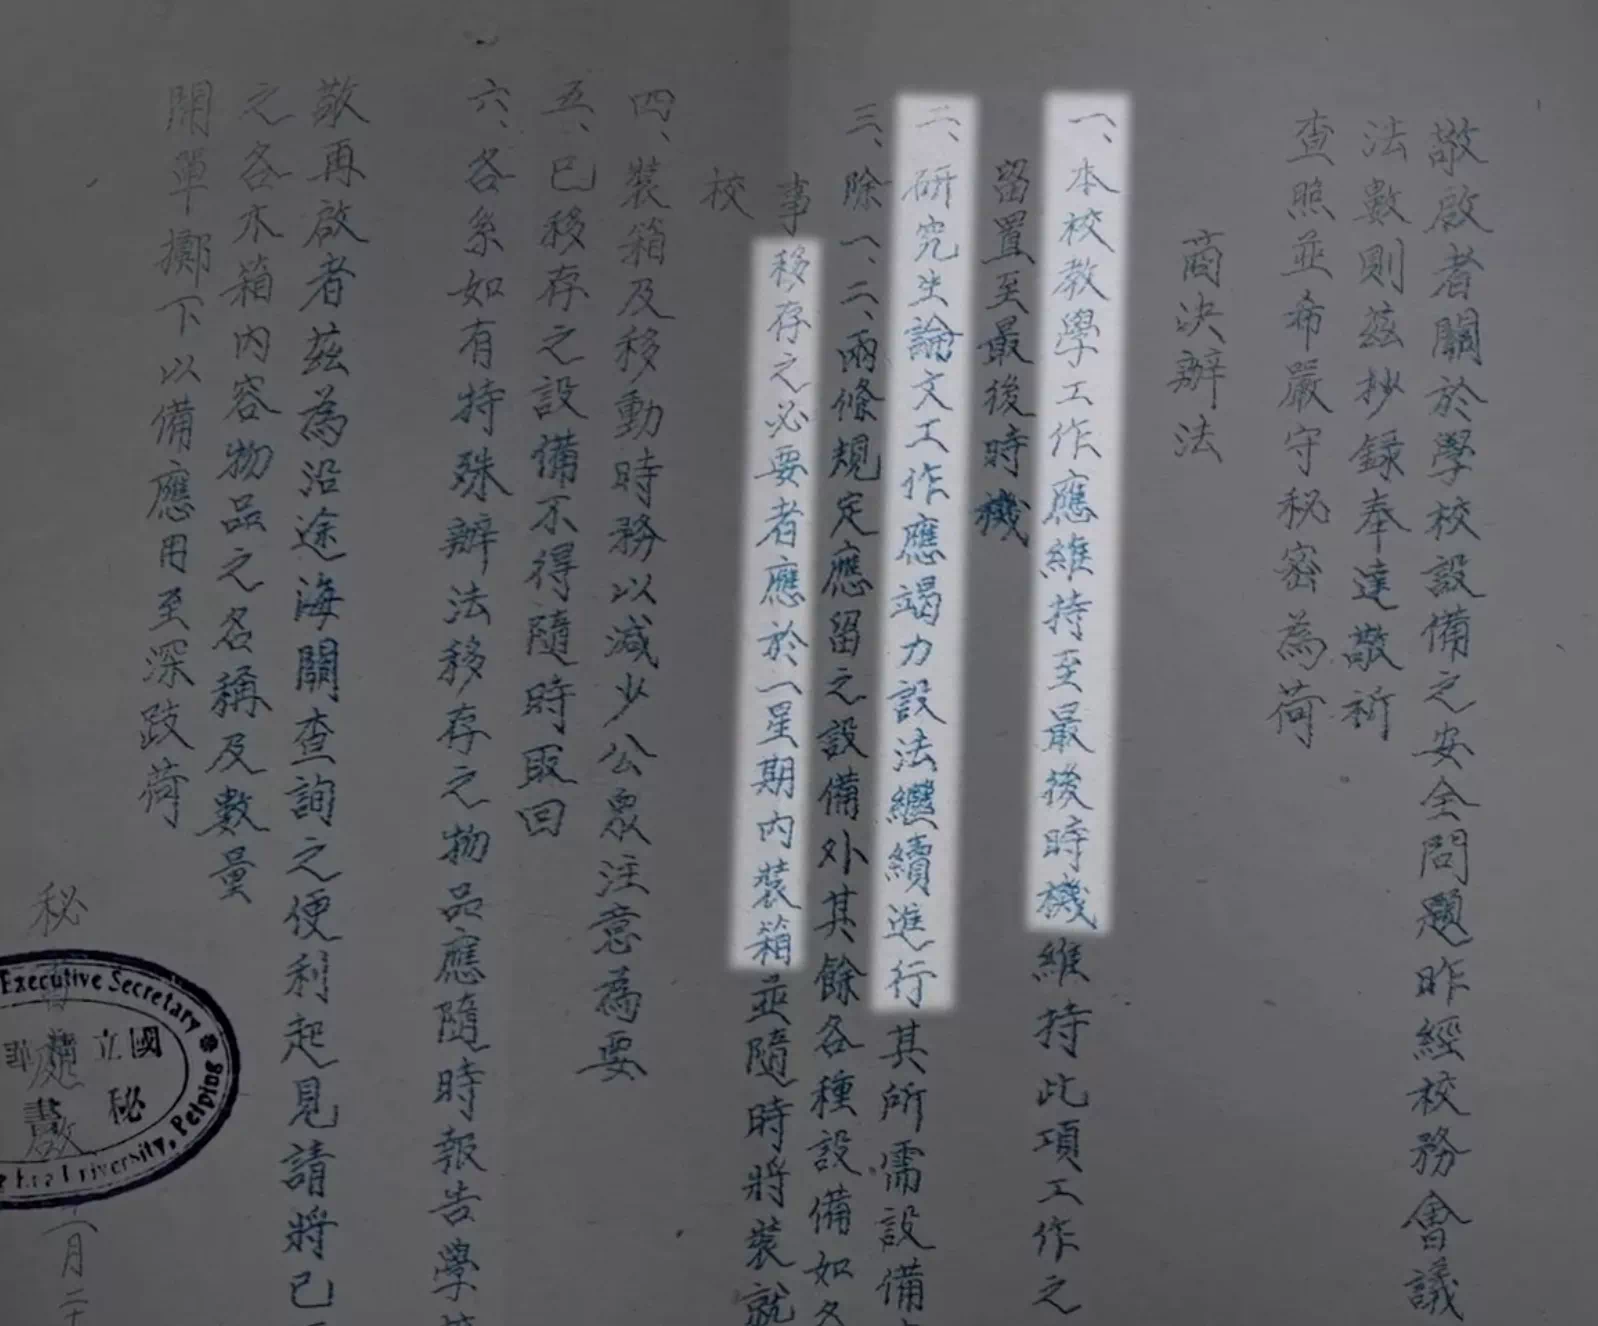 敬啟者關於學校設備之安全問題昨經校務會議
法數則茲抄録奉達敬祈
查照並希嚴守秘密為荷
商決辦法
一、本校教學工作應維持至最後時機維持此項工作之
留置至最後時機
二、研究生論文工作應竭力設法繼續進行其所需設備
三、除一、二、兩條規定應留之設備外其餘各種設備如
事移存之必要者應於一星期内裝箱並隨時將裝就
校
四、裝箱及移動時務以減少公眾注意為要
五、已移存之設備不得隨時取回
六、各系如有特殊辦法移存之物品應隨時報告學
敬再啟者茲為沿途海關查詢之便利起見請將已
之各木箱内容物品之名稱及數量
開單擲下以備應用至深跂荷
秘書處啟
月二十
Executive Secretary
University, Peiping
國立
秘